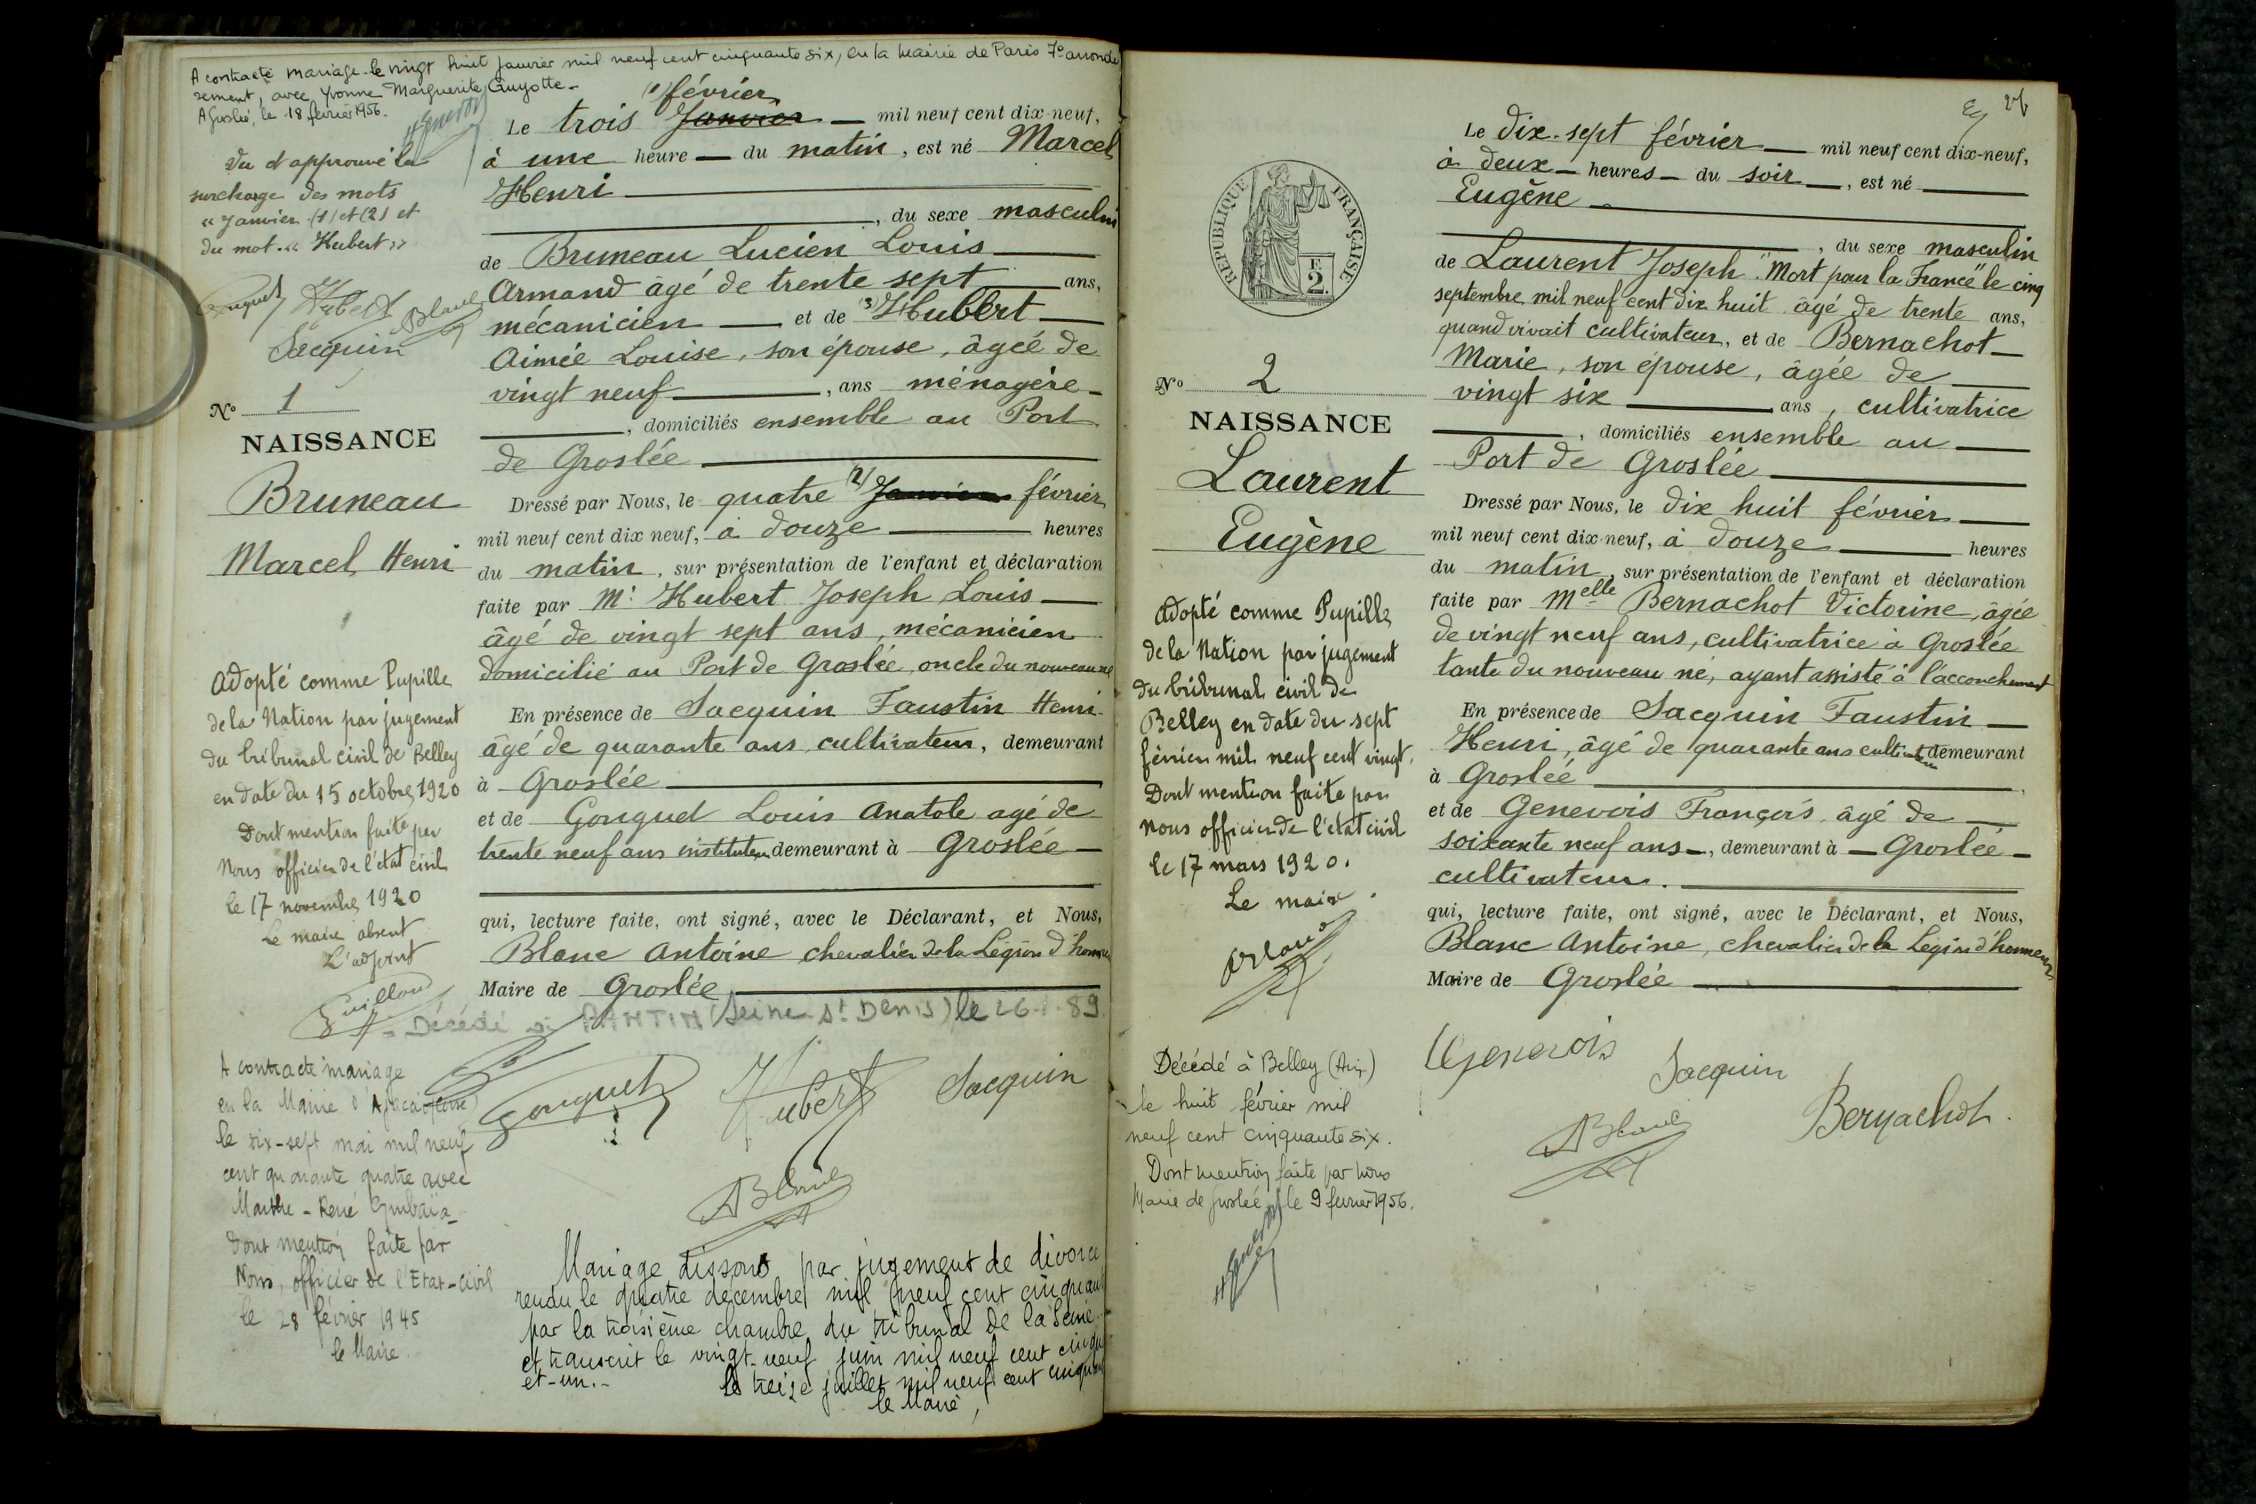 A contracté mariage le vingt huit janvier mil neuf cent cinquante six, en la mairie de Paris 7e arrondis
sement, avec Yvonne Marguerite Guyotte -
A Groslée, le 18 février 1956.
Vu et approuvé la
surcharge des mots
« Janvier (1) et (2) et
du mot « Hubert »
Gouguet Hubert Blanc
Sacquin
No 1
NAISSANCE
Bruneau
Marcel Henri
Adopté comme Pupille
de la Nation par jugement
du tribunal civil de Belley
en date du 15 octobre 1920
Dont mention faite par
Nous officier de l'état civil
le 17 novembre 1920
Le maire absent
L'adjoint
A contracté mariage
en la Mairie
le dix-sept mai mil neuf
cent quarante quatre avec
Marthe - René
Dont mention faite par
Nous, officier de l'Etat-civil
le 28 février 1945
le Maire.
(1) février
Le trois Janvier mil neuf cent dix neuf,
à une heure du matin, est né Marcel
Henri
, du sexe masculin
de Bruneau Lucien Louis
Armand âgé de trente sept ans,
mécanicien et de (3) Hubert
Aimée Louise, son épouse, âgée de
vingt neuf, ans ménagère
, domiciliés ensemble au Port
de Groslée
Dressé par Nous, le quatre (2) Janvier février
mil neuf cent dix neuf, à douze heures
du matin, sur présentation de l'enfant et déclaration
faite par Mr Hubert Joseph Louis
âgé de vingt sept ans, mécanicien
domicilié au Port de Groslée, oncle du nouveau né
En présence de Sacquin Faustin Henri
âgé de quarante ans cultivateur, demeurant
à Groslée
et de Gouguet Louis Anatole agé de
trente neuf ans instituteur demeurant à Groslée
qui, lecture faite, ont signé, avec le Déclarant, et Nous,
Blanc Antoine chevalier de la Légion d'honneur
Maire de Groslée
- Décédé à PANTIN (Seine St Denis) le 26.1.89.
Gouguet Hubert Sacquin
ABlanc
Mariage dissous par jugement de divorce
rendu le quatre décembre mil neuf cent cinquante
par la troisième chambre du tribunal de la Seine
et transcrit le vingt-neuf juin mil neuf cent cinqu
et-un.- le treize juillet mil neuf cent cinquan
le Maire,
26
RÉPUBLIQUE FRANÇAISE
2
No 2
NAISSANCE
Laurent
Eugène
Adopté comme Pupille
de la Nation par jugement
du tribunal civil de
Belley en date du sept
février mil neuf cent vingt.
Dont mention faite par
nous officier de l'état civil
le 17 mars 1920.
Le maire
ABlanc
Décédé à Belley (Ain)
le huit février mil
neuf cent cinquante six.
Dont mention faite par nous
Maire de Groslée le 9 février 1956.
Le dix-sept février mil neuf cent dix-neuf,
à deux heures du soir, est né
Eugène
, du sexe masculin
de Laurent Joseph "Mort pour la France" le cinq
septembre mil neuf cent dix huit âgé de trente ans,
quand vivait cultivateur, et de Bernachot
Marie, son épouse, âgée de
vingt six ans, cultivatrice
, domiciliés ensemble au
Port de Groslée
Dressé par Nous, le dix huit février
mil neuf cent dix-neuf, à douze heures
du matin, sur présentation de l'enfant et déclaration
faite par Melle Bernachot Victorine, âgée
de vingt neuf ans, cultivatrice à Groslée
tante du nouveau né, ayant assisté à l'accouchement
En présence de Sacquin Faustin
Henri, âgé de quarante ans cultivateur demeurant
à Groslée
et de Genevois François âgé de
soixante neuf ans, demeurant à Groslée
cultivateur.
qui, lecture faite, ont signé, avec le Déclarant, et Nous,
Blanc Antoine, chevalier de la Légion d'honneur
Maire de Groslée
Genevois Sacquin
ABlanc Bernachot